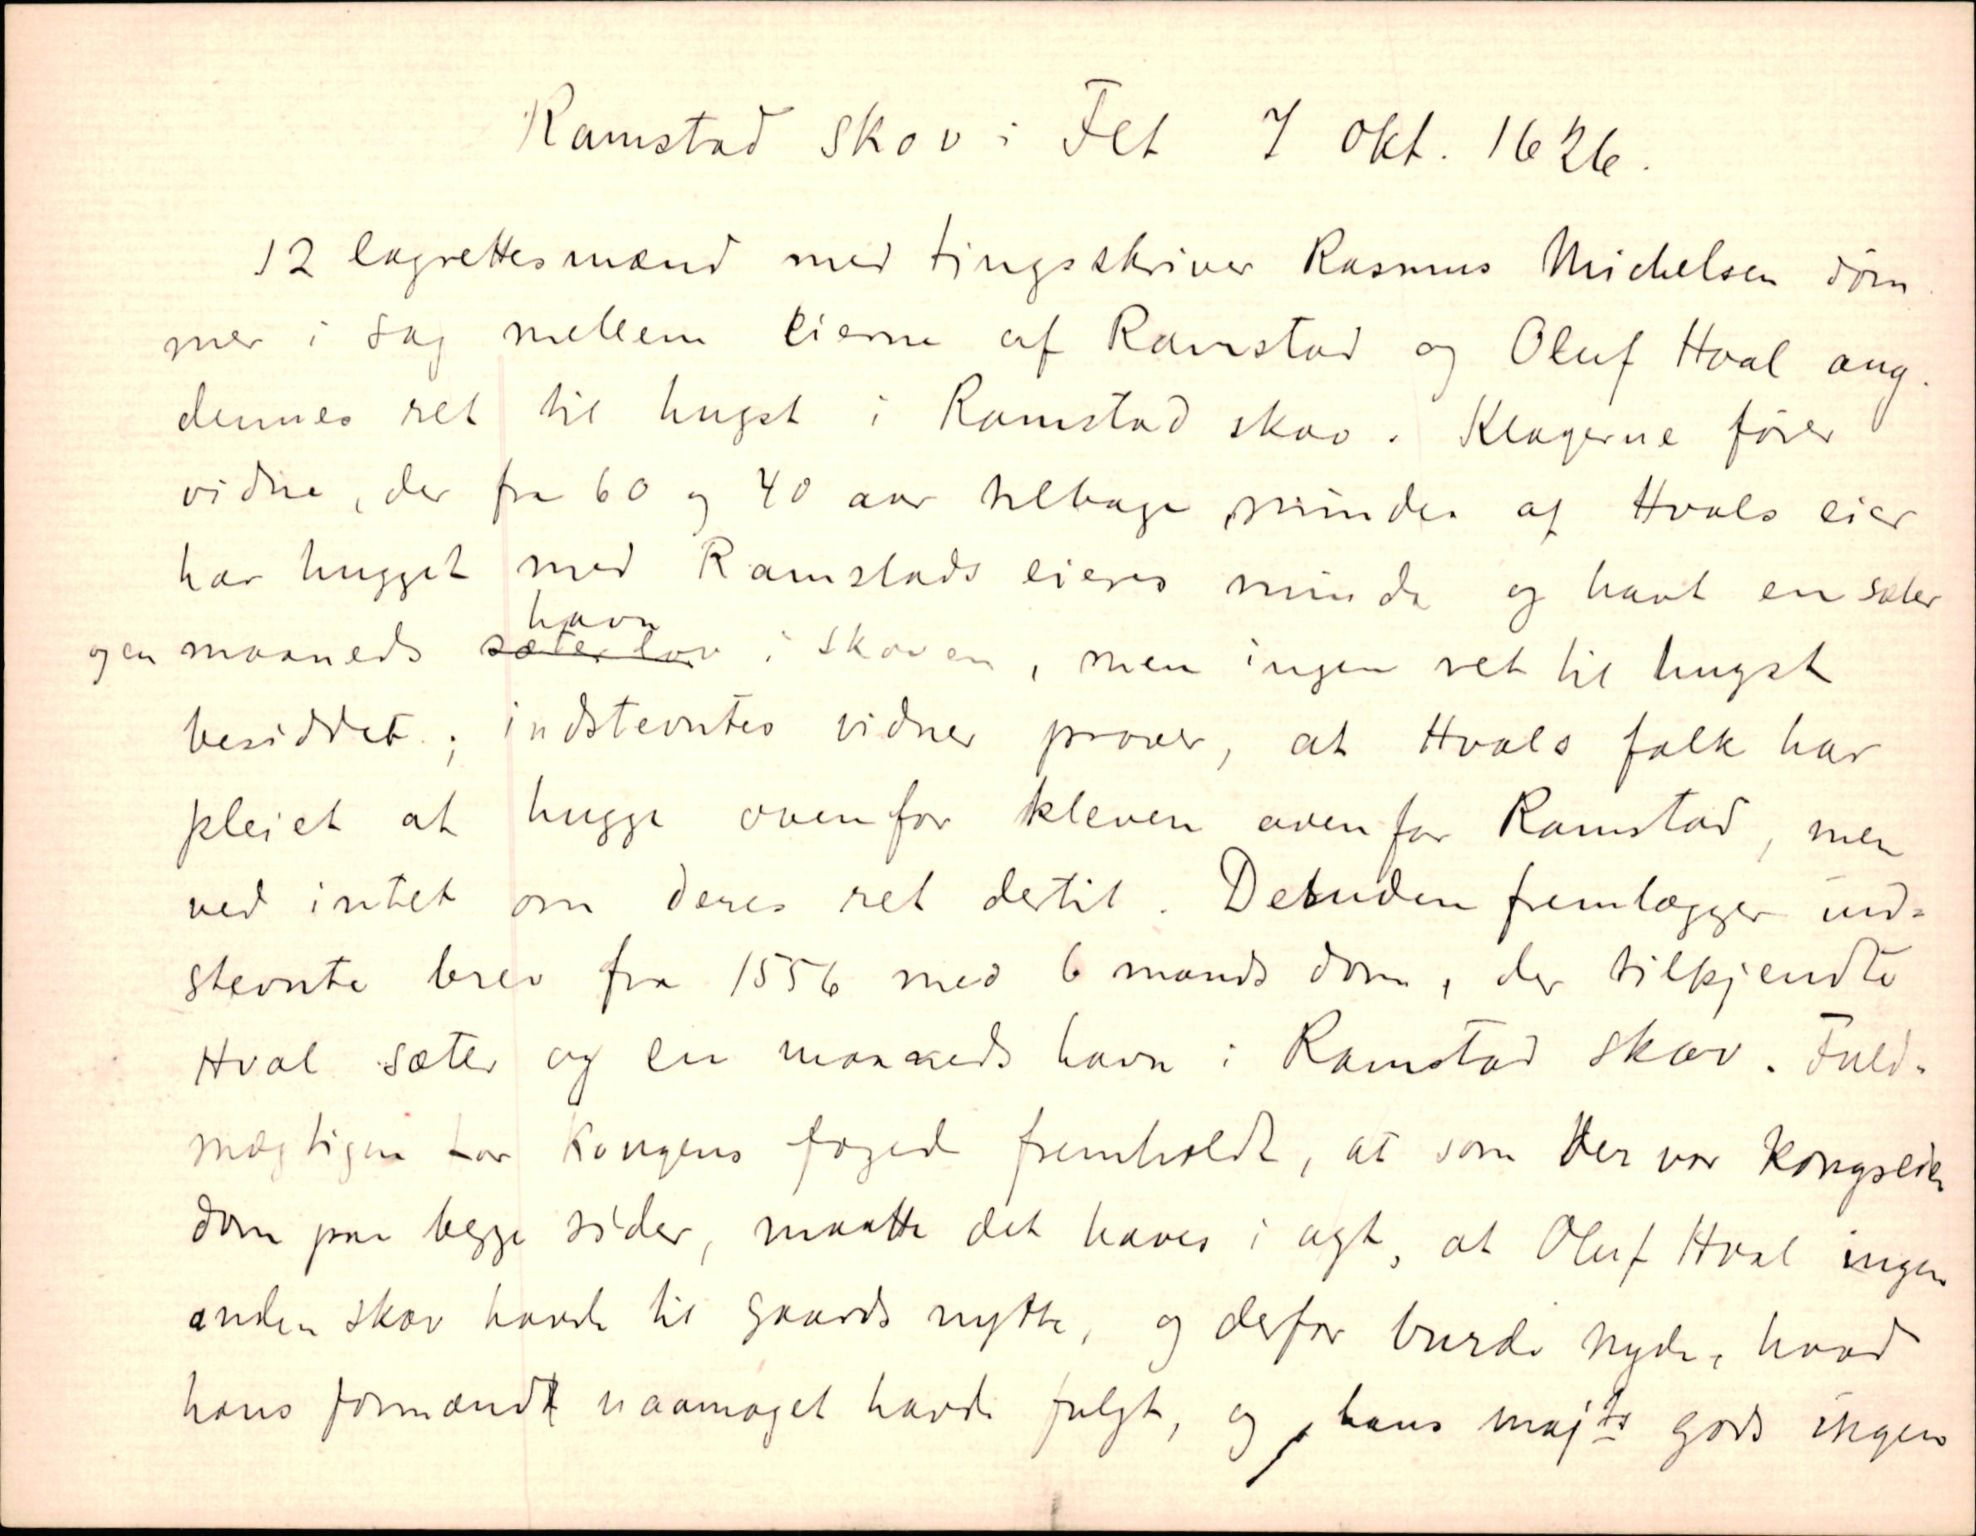 Ramstad skov i Fet 7 okt. 1626.
12 lagrettesmænd med tingsskriver Rasmus Michelsen døm
mer i sag mellem eierne af Ramstad og Oluf Hval ang.
dennes ret til hugst i Ramstad skov. Klagerne fører
vidne, der fra 60 og 40 aar tilbage mindes at Hvals eier
har hugget med Ramstads eieres minde og havt en sæter
og en maaneds havn i skoven, men ingen ret til hugst
besiddet; indstevntes vidner prover, at Hvals folk har
pleiet at hugge ovenfor kleven ovenfor Ramstad, men
ved intet om deres ret dertil. Desuden fremlægger ind-
stevnte brev fra 1556 med 6 mands dom, der tilkjendte
Hval sæter og en maaneds havn i Ramstad skov. Fuld-
mægtigen for Kongens foged fremholdt, at som der var Kongseien
dom paa begge sider, maatte det haves i agt, at Oluf Hval ingen
anden skov havde til gaards nytte, og derfor burde nyde, hvad
hans formænd uaamaget havde fulgt, og hans maj<u>ts</u> gods ingen